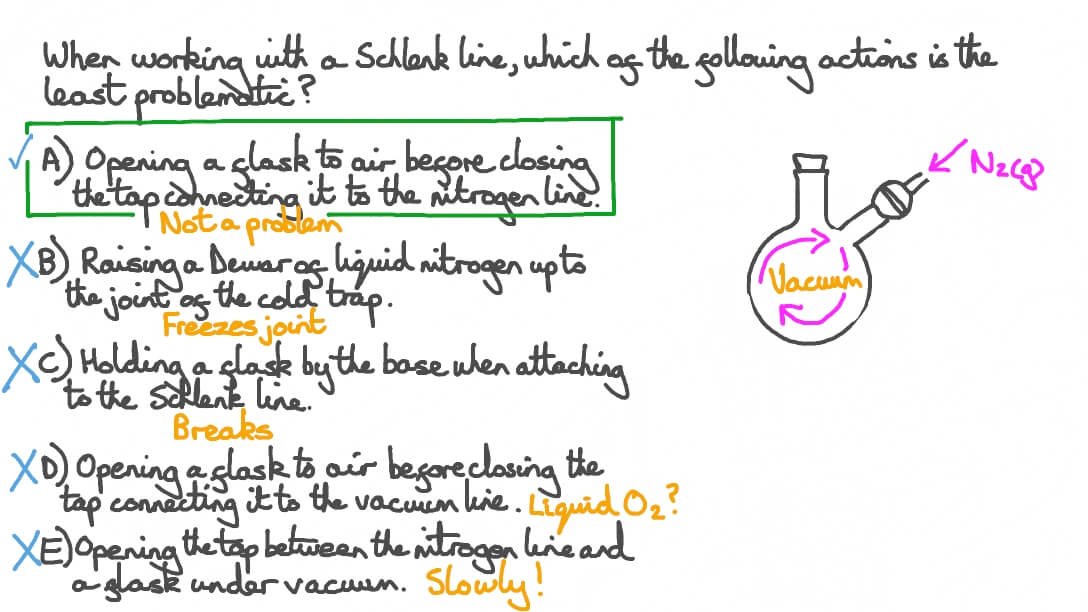 When working with a Schlenk line, which of the following actions is the
least problematic?
A) Opening a flask to air before closing
the tap connecting it to the nitrogen line.
Not a problem
B) Raising a Dewar of liquid nitrogen up to
the joint of the cold trap.
Freezes joint
C) Holding a flask by the base when attaching
to the Schlenk line.
Breaks
D) Opening a flask to air before closing the
tap connecting it to the vacuum line. Liquid O₂?
E) Opening the tap between the nitrogen line and
a flask under vacuum. Slowly!
N₂(g)
Vacuum